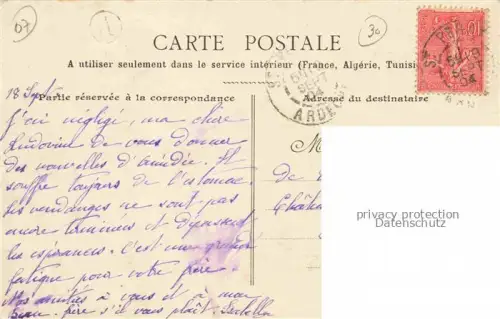 07
1
30
CARTE POSTALE
A utiliser seulement dans le service intérieur (France, Algérie, Tunisie
18 Sept
Partie réservée à la correspondance
Adresse du destinataire
ARDECHE
J'ai négligé, ma chère
Ludovine de vous donner
des nouvelles d'Amédée. Il
souffre toujours de l'estomac.
les vendanges ne sont pas
encore terminées et
les espérances. c'est une grande
fatigue pour votre frère.
Mes amitiés à vous et à mon
Beau-frère s'il vous plaît.
M
de
Châte
privacy protection
Datenschutz